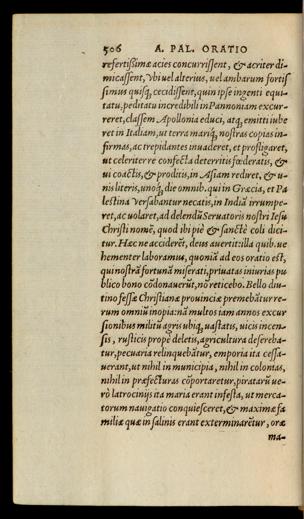 506 A. PAL. ORATIO
refertißimæ acies concurrissent, & acriter di-
micassent, vbi uel alterius, uel ambarum fortis
simus quisq;, cecidissene, quin ipse ingenti equi-
tatu, peditatu incredibili in Pannoniam excur-
reret, classem Apollonia educi, atq; emitti iube
ret in Italiam, ut terra mariq; nostras copias in-
firmas, ac trepidantes inuaderet, et profligaret,
ut celeriter re confecta deterritis fœderatis, &
ui coactis, & proditis, in Asiam rediret, & u-
nis literis, unoq; die omnib. qui in Græcia, et Pa
lestina versabantur necatis, in Indiã irrumpe-
ret, ac uolaret, ad delendũ Seruatoris nostri Iesu
Christi nomẽ, quod ibi piè & sanctè coli dici-
tur. Hæc ne acciderẽt, deus auertit: illa quib. ue
hementer laboramus, quoniã ad eos oratio est,
qui nostrã fortunã miserati, priuatas iniurias pu
blico bono cõdonauerũt, nõ reticebo. Bello diu-
tino fessæ Christianæ prouinciæ premebãtur re-
rum omniũ inopia: nã multos iam annos excur
sionibus militũ agris ubiq; uastatis, uicis incen-
sis, rusticis propè deletis, agricultura deserebа-
tur, pecuaria relinquebãtur, emporia ita cessa-
uerant, ut nihil in municipia, nihil in colonias,
nihil in præfecturas cõportaretur, piratarũ ue-
rò latrocinijs ita maria erant infesta, ut merca-
torum nauigatio conquiesceret, & maximæ fa
miliæ quæ in salinis erant exterminarẽtur, oræ
ma-